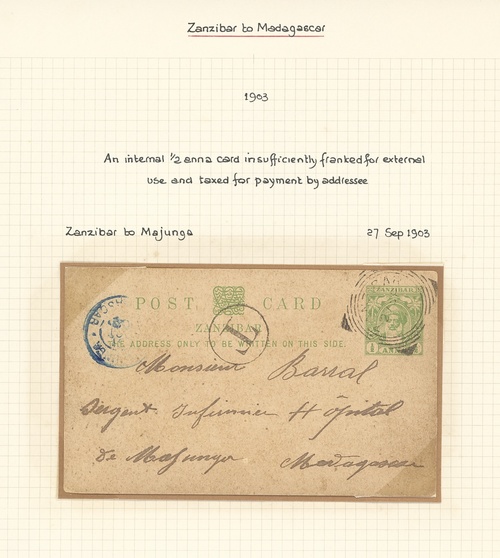 Zanzibar to Madagascar
1903
An internal ½ anna card insufficiently franked for external
use and taxed for payment by addressee
Zanzibar to Majunga 27 Sep 1903
POST CARD
ZANZIBAR
ZANZIBAR
THE ADDRESS ONLY TO BE WRITTEN ON THIS SIDE.
T
Monsieur Barral
Sergent Infirmier Hôpital
de Majunga Madagascar